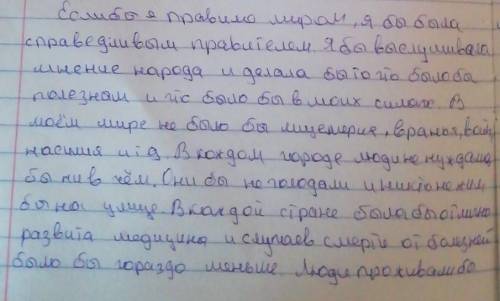 Если бы я правила миром, я бы была
справедливым правителем. Я бы выслушивала
мнение народа и делала бы то что было ба
полезнам и что было бы в моих силах. В
моём мире не было бы лицемерия, вранья, войн,
насилия и т.д. В каждом городе люди не нуждались
бы ни в чём. Они бы не голодали и никто не жил
бы на улице. В каждой стране была бы отлично
развита медицина и случаев смерти от болезней
было бы гораздо меньше. Люди проживали бы